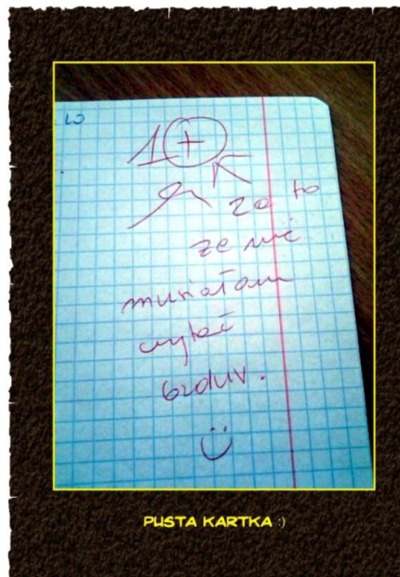 1+
za to
że nie
musiałam
czytać
bzdur.
PUSTA KARTKA :)